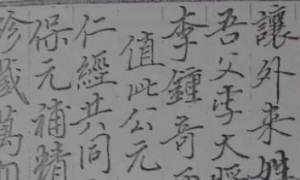 讓外来姓
吾父李大
李鍾奇
值此公元
仁經共同
保元補精
珍藏萬